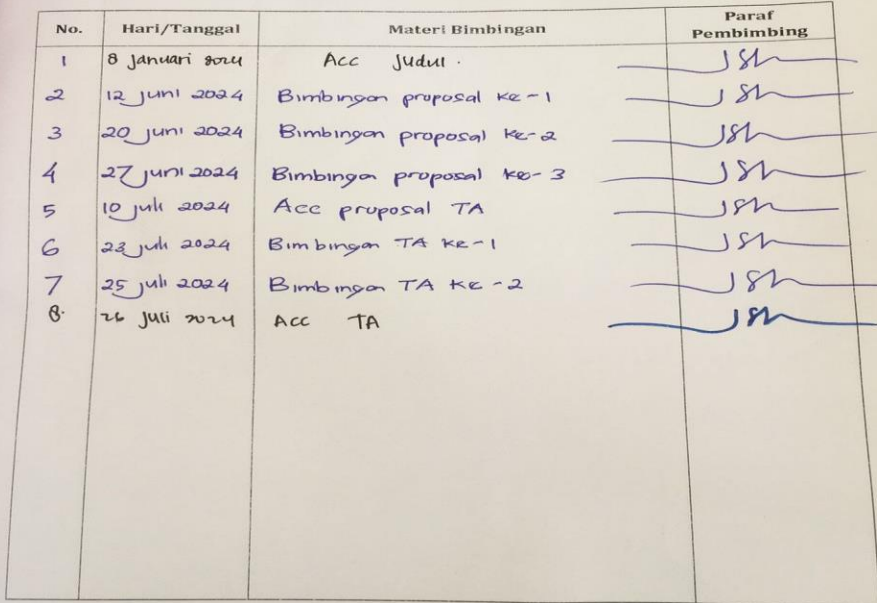 No. Hari/Tanggal Materi Bimbingan Paraf Pembimbing
1 8 Januari 2024 Acc Judul.
2 12 Juni 2024 Bimbingan proposal ke-1
3 20 Juni 2024 Bimbingan proposal ke-2
4 27 Juni 2024 Bimbingan proposal ke-3
5 10 Juli 2024 Acc proposal TA
6 23 Juli 2024 Bimbingan TA ke-1
7 25 Juli 2024 Bimbingan TA ke-2
8. 26 Juli 2024 Acc TA